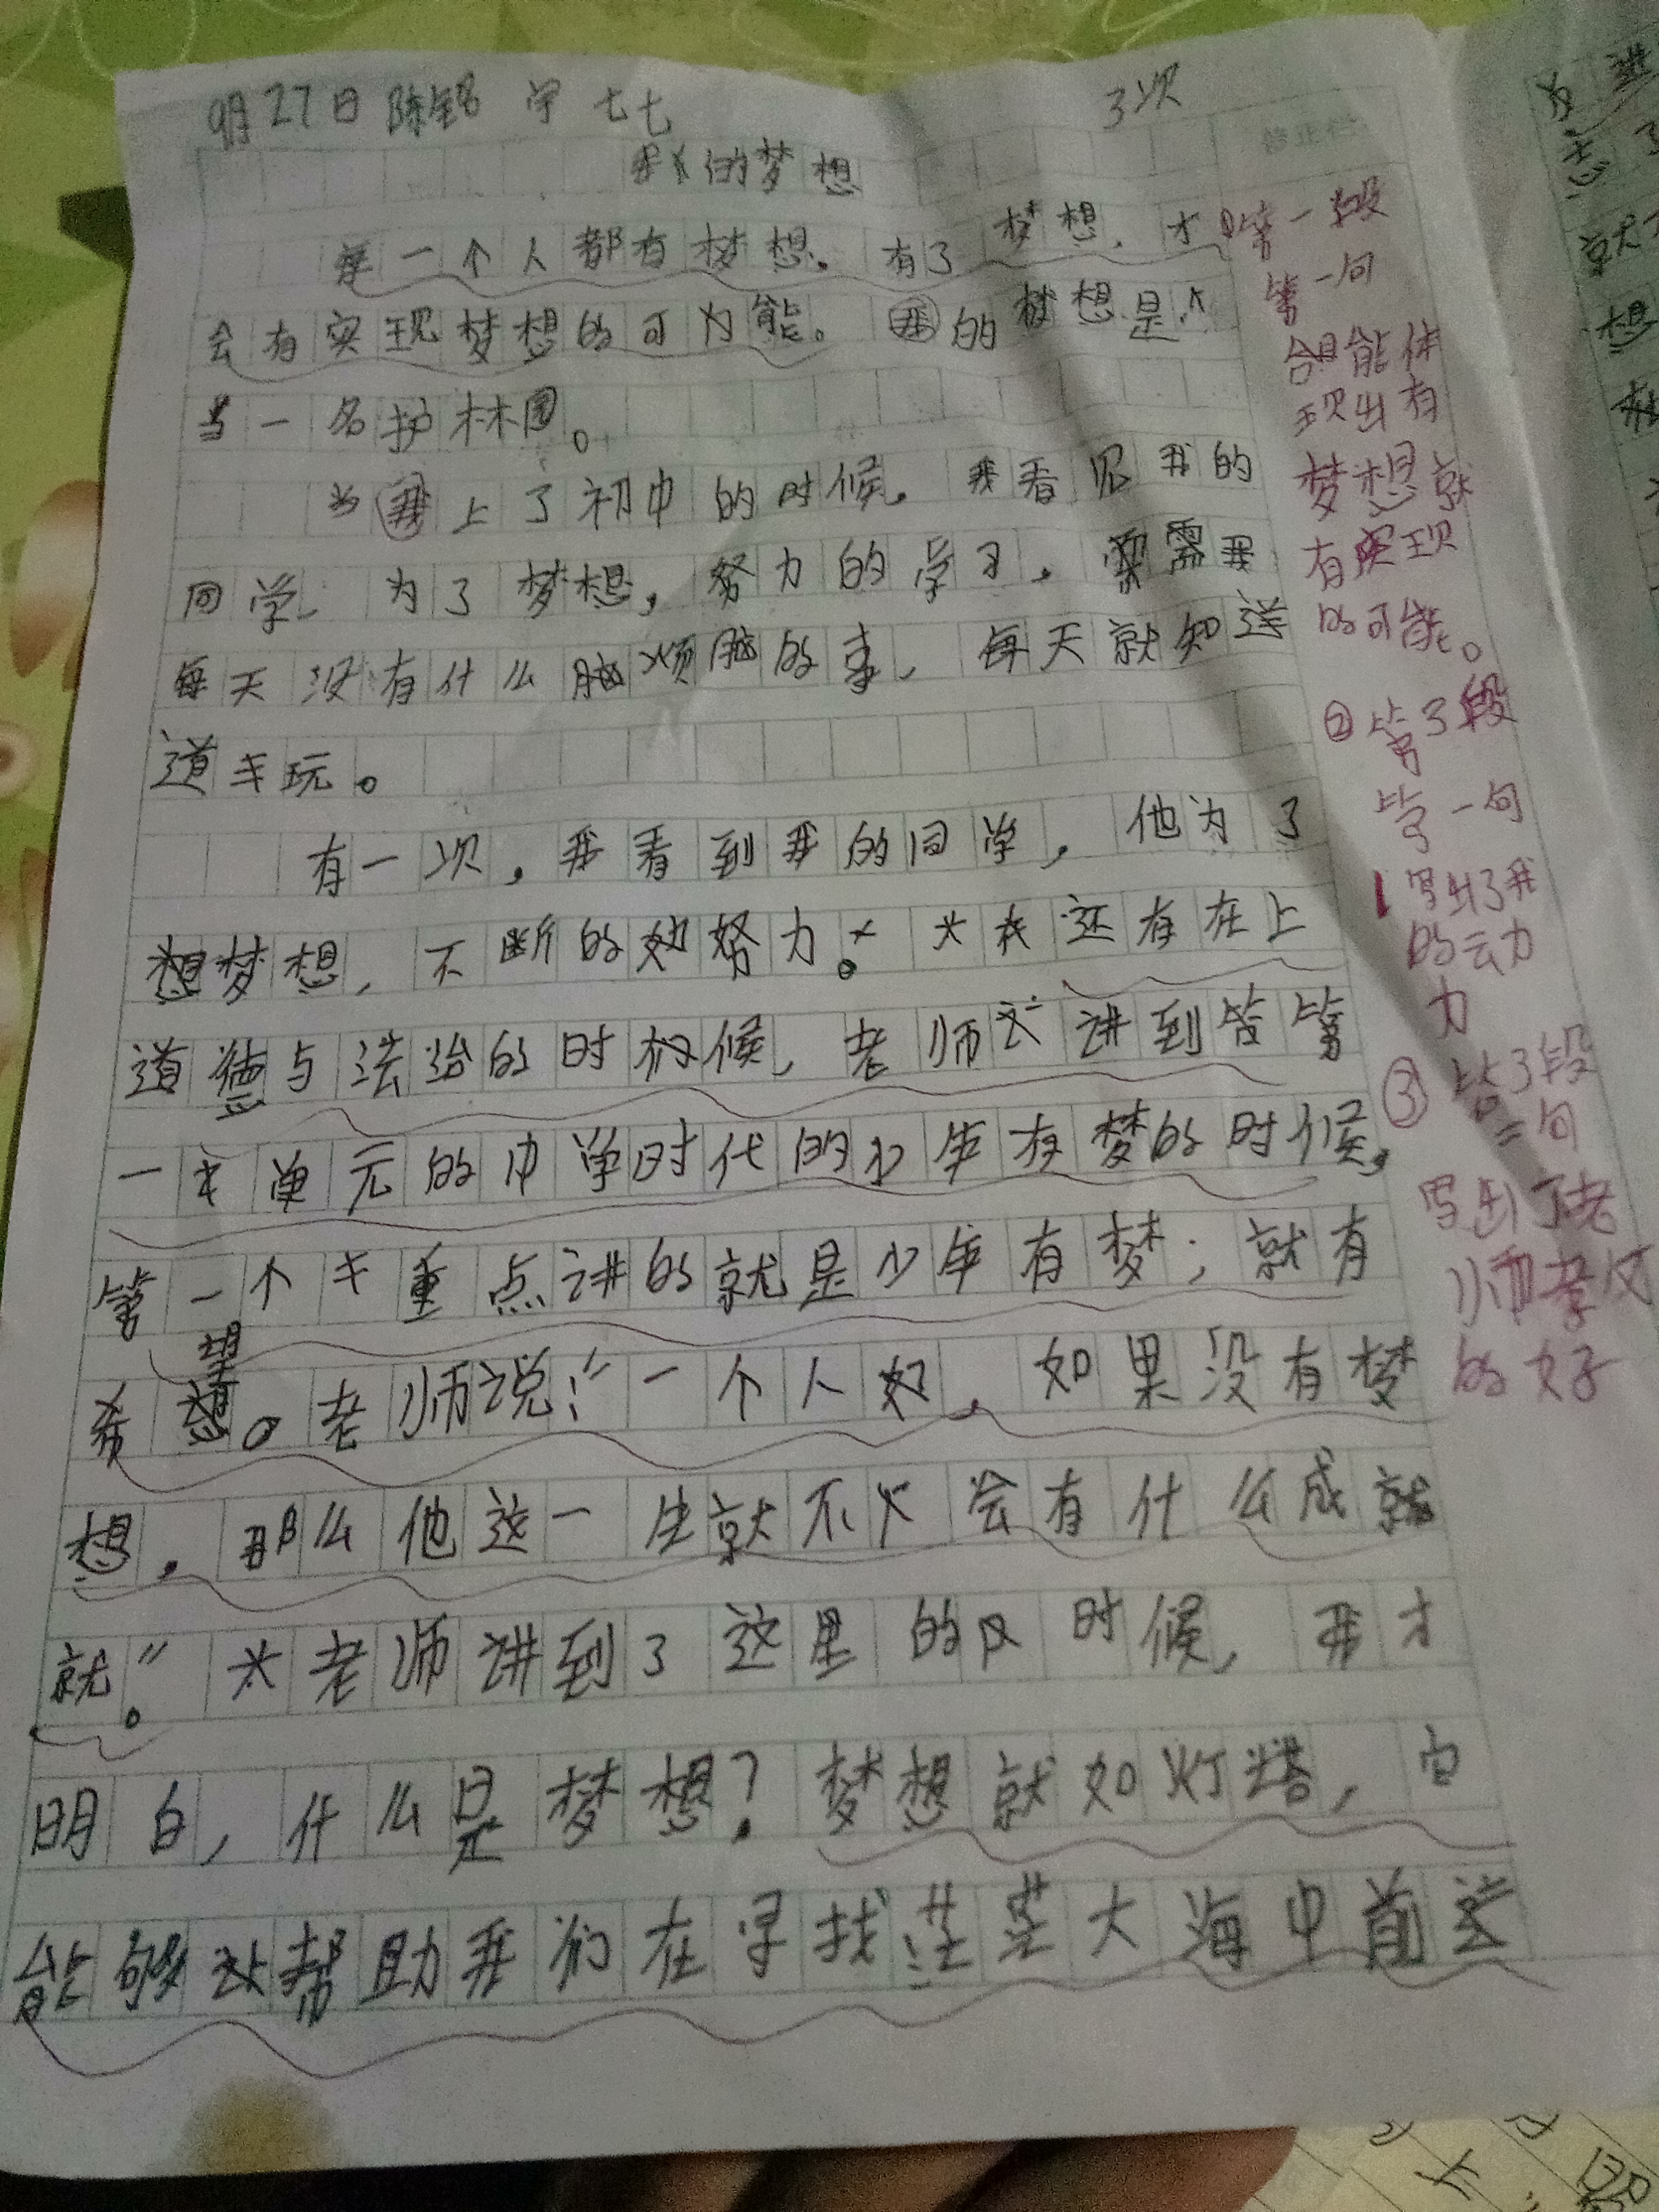 9月27日 陈铭宇 七七
3次
修正栏
我的梦想
每一个人都有梦想。有了梦想,才
会有实现梦想的可为能。我的梦想是
当一名护林园。
当我上了初中的时候,我看见我的
同学,为了梦想,努力的学习,而我
每天没有什么烦脑的事,每天就知道
道玩。
有一次,我看到我的同学,他为了
梦想,不断的努力。还有在上
道德与法治的时候,老师讲到第
一单元的中学时代的少年有梦的时候,
第一个重点讲的就是少年有梦;就有
希望。老师说:“一个人,如果没有梦
想,那么他这一生就不会有什么成就
就。”老师讲到了这里的时候,我才
明白,什么是梦想?梦想就如灯塔,它
能够帮助我们在寻找茫茫大海中前
①第一段
第一句
能体
现出有
梦想就
有实现
的可能。
②第3段
第一句
写出了我
的云力
力
③第3段
二句
写出了老
师孝文
的好